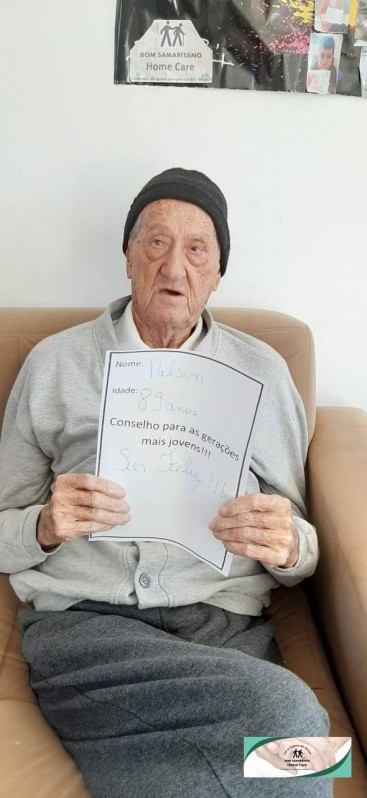 BOM SAMARITANO
Home Care
Nome: Nelson
Idade: 89 anos
Conselho para as gerações
mais jovens!!!
Ser Feliz!!!
BOM SAMARITANO
Home Care